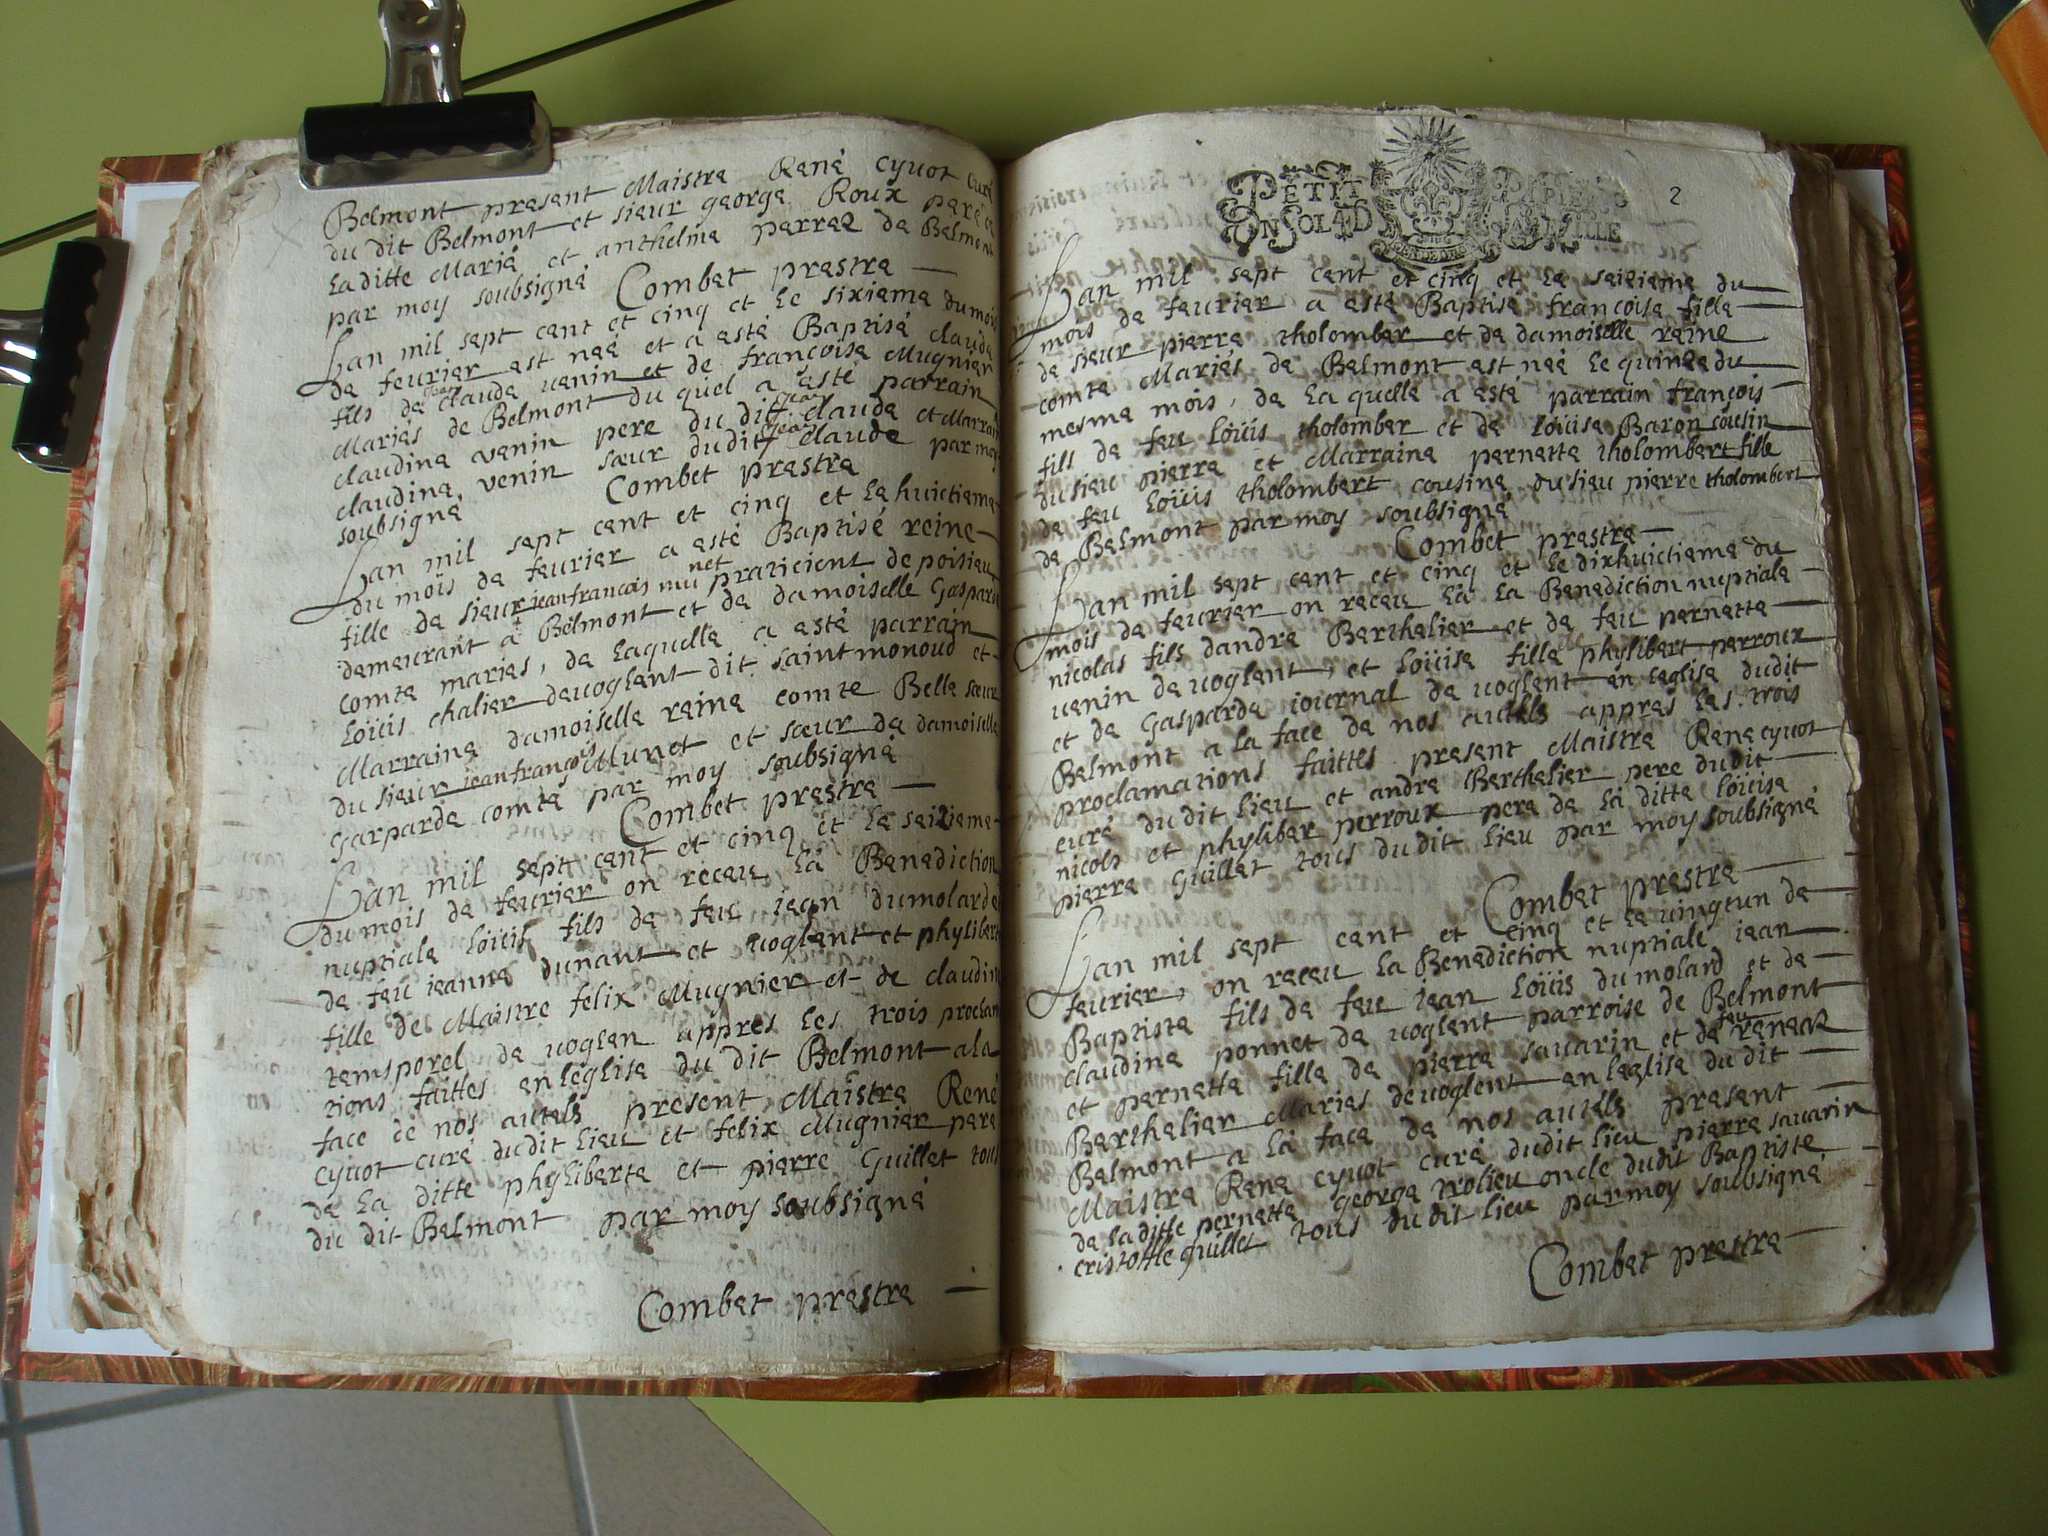 Belmont present Maistre René Cyvot Curé
du dit Belmont et sieur george Roux pere de
laditte Marie et anthelme perret de Belmont
par moy soubsigné Combet prestre
Lan mil sept cent et cinq et le sixieme du mois
de feurier est neé et a esté Baptisé claude
fils de claude venin et de françoise Mugnier
Mariés de Belmont du quel a esté parrain
claudine venin pere du dit claude et Marrain
claudine venin sœur dudit claude par moy
soubsigné Combet prestre
Lan mil sept cent et cinq et le huictieme
du mois de feurier a esté Baptisé reine
fille de sieur jean francois munet praticient de poisieu
demeurant a Belmont et de damoiselle Gasparde
comte mariés, de laquelle a esté parrain
Loüis chalier de voglant dit saint monoud et
Marraine damoiselle reine comte Belle sœur
du sieur jean françois Munet et sœur de damoiselle
Gasparde comte par moy soubsigné
Combet prestre
Lan mil sept cent et cinq et le seizieme
du mois de feurier on receu la Benediction
nuptiale Loüis fils de feu jean dumolarde
de feu jeanne dunant et voglant et phylibert
fille de Maistre felix Mugnier et de claudine
temsporel de voglen appres les trois proclam
tions faittes en leglise du dit Belmont a la
face de nos autels present Maistre René
Cyvot curé dudit lieu et felix Mugnier pere
de la ditte phyliberte et pierre Guillet tous
du dit Belmont par moy soubsigné
Combet prestre
2
PETIT PAPIER
UN SOL 4D LA FEUILLE
Lan mil sept cent et cinq et le seizieme du
mois de feurier a esté Baptisé françoise fille
de sieur pierre tholomber et de damoiselle reine
comte Mariés de Belmont est neé le quinze du
mesme mois, de la quelle a esté parrain françois
fils de feu Loüis tholomber et de Loüise Baron cousin
du sieu pierre et Marraine pernette tholombert fille
de feu Loüis tholombert cousine du sieu pierre tholombert
de Belmont par moy soubsigné
Combet prestre
Lan mil sept cent et cinq et le dixhuictieme du
mois de feurier on receu la la Benediction nuptiale
nicolas fils dandre Berthelier et de feu pernette
venin de voglant, et Loüise fille de phylibert perroux
et de Gasparde iovernal de voglent en leglise dudit
Belmont a la face de nos autels appres les trois
proclamations faittes present Maistre Rene cyvot
curé du dit lieu et andre Berthelier pere dudit
nicols et phyliber perroux pere de la ditte loüise
pierre Guillet tous du dit lieu par moy soubsigné
Combet prestre
Lan mil sept cent et cinq et le vingtun de
feurier, on receu la Benediction nuptiale jean
Baptiste fils de feu jean Loüis dumolard et de
claudine ponnet de voglent parroise de Belmont
et pernette fille de pierre sauarin et de feu reneé
Berthelier Mariés de voglent en leglise du dit
Belmont a la face de nos autels present
Maistre Rene cyvot curé dudit lieu pierre sauarin
de la ditte pernette george trolieu oncle dudit Baptiste
cristoffle guillet tous du dit lieu par moy soubsigné
Combet prestre